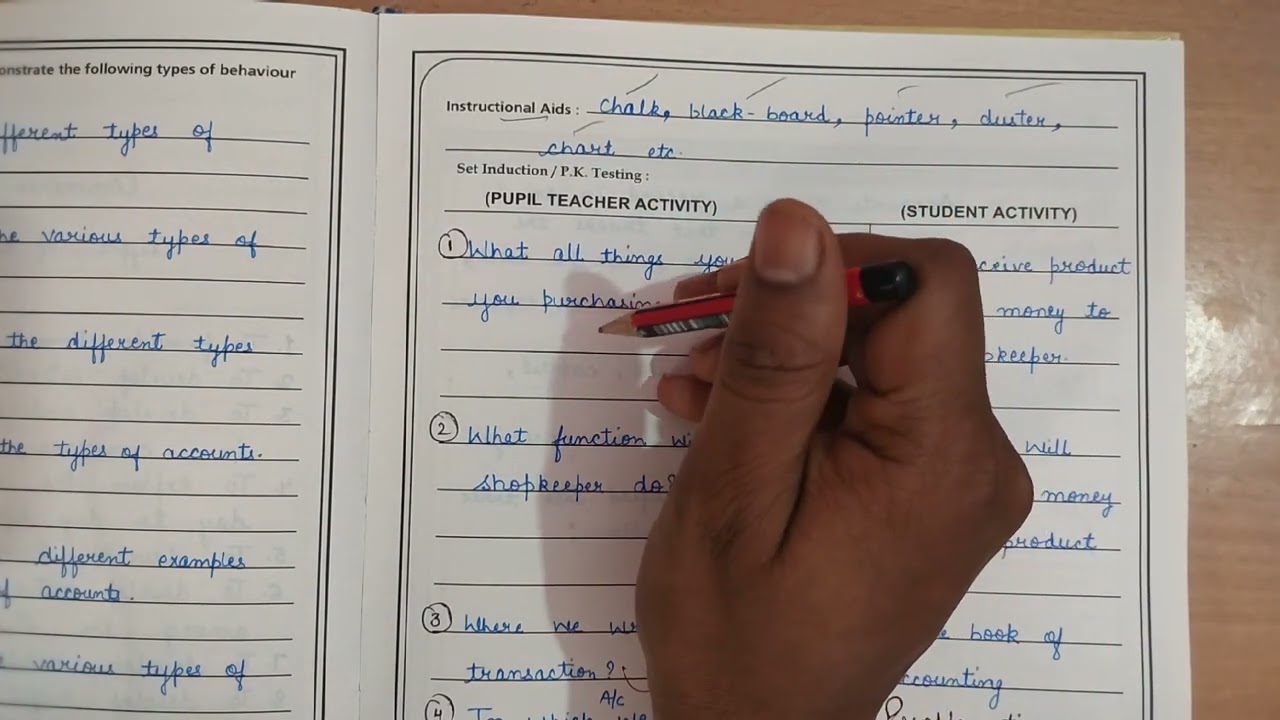 onstrate the following types of behaviour
fferent types of
he various types of
the different types
the types of accounts.
different examples
of accounts.
various types of
Instructional Aids : chalk, black-board, pointer, duster,
chart etc.
Set Induction / P.K. Testing :
(PUPIL TEACHER ACTIVITY) (STUDENT ACTIVITY)
① What all things you ceive product
you purchasin money to
keeper.
② What function wi will
shopkeeper do? money
product
③ Where we wr book of
transaction? ccounting
A/c
④ In which